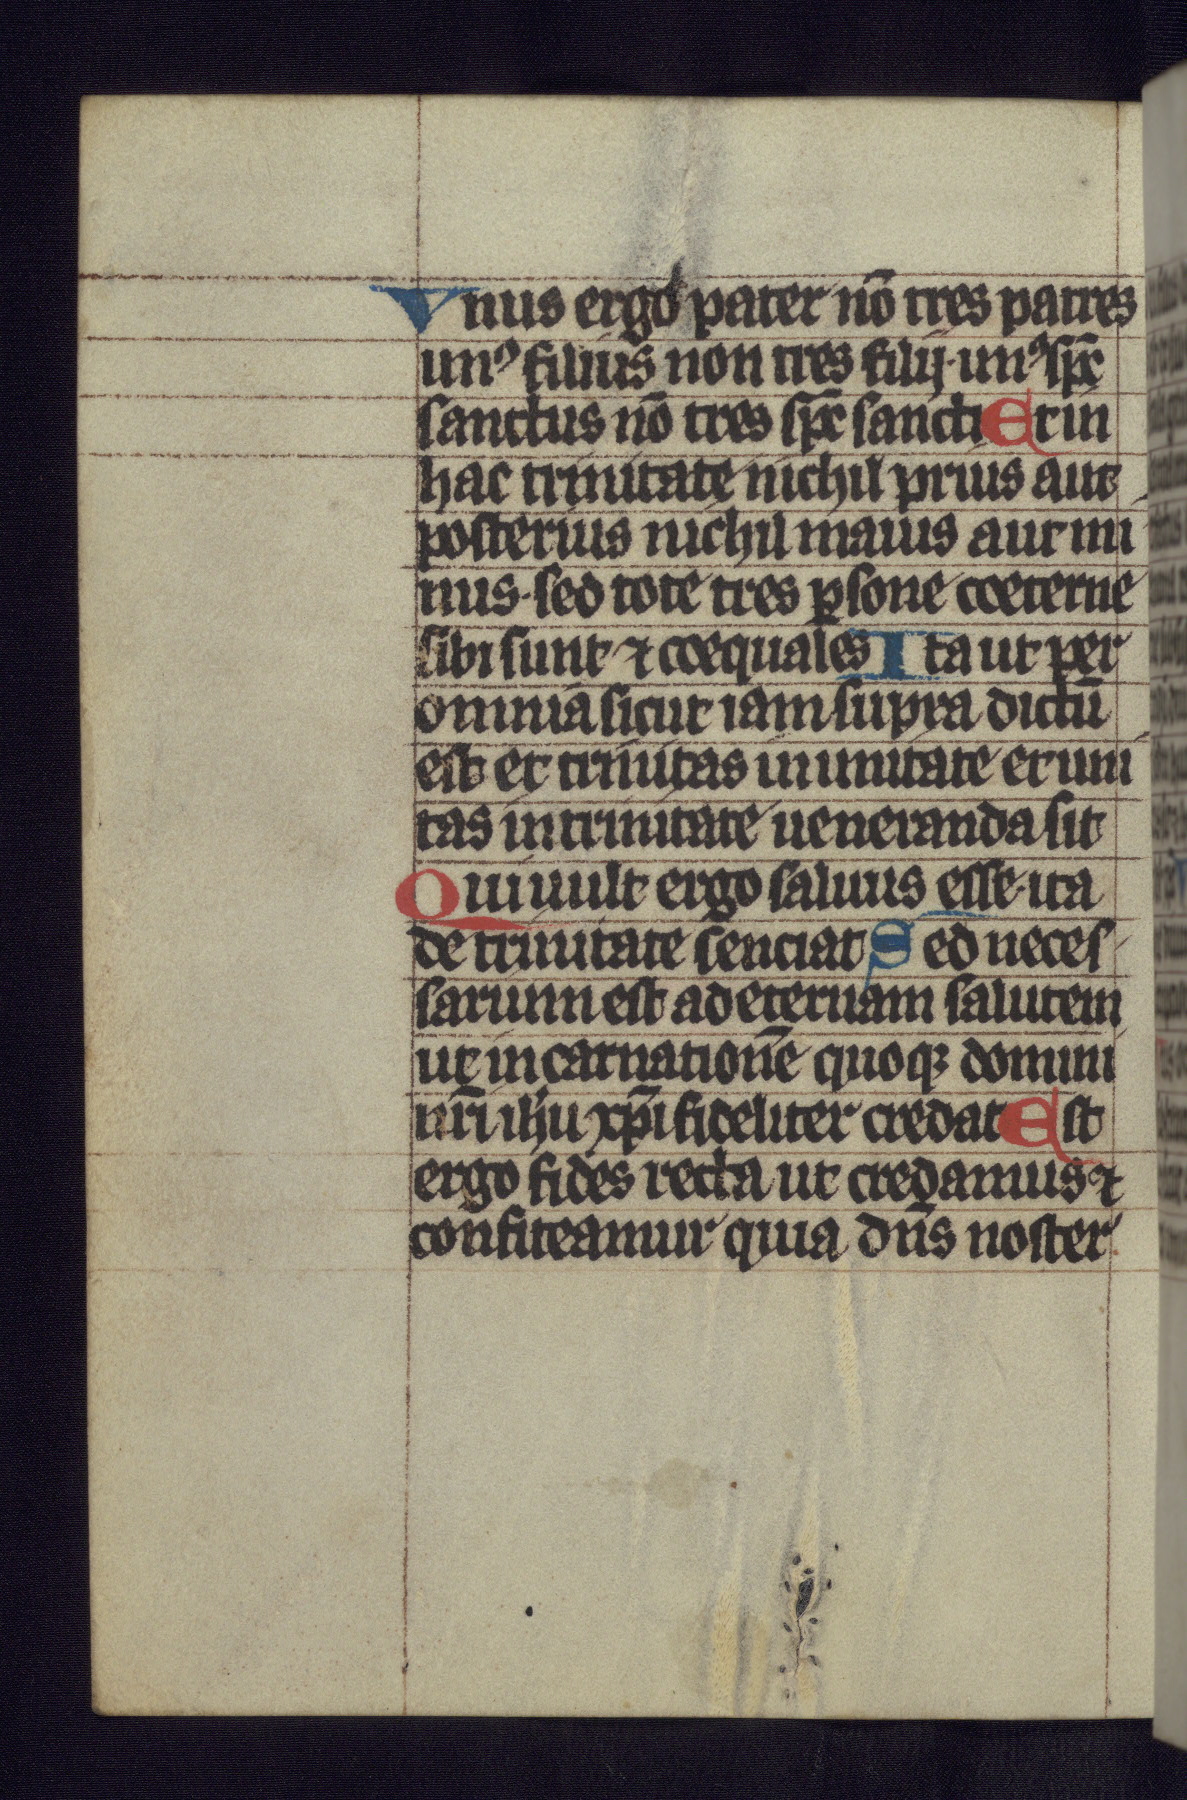 Vnus ergo pater nō tres patres
unꝰ filius non tres filij· unꝰ sp̄c
sanctus nō tres sp̄c sancti Et in
hac trinitate nichil prius aut
posterius nichil maius aut mi
nus· sed tote tres ꝑsone coeterne
sibi sunt ⁊ coequales Ita ut per
omnia sicut iam supra dictū
est et trinitas in unitate et uni
tas in trinitate ueneranda sit
Qui uult ergo saluus esse· ita
de trinitate senciat Sed neces
sarium est ad eternam salutem
ut incarnationē quoqꝫ domini
nr̄i ih̄u xp̄i fideliter credat Est
ergo fides recta ut credamus ⁊
confiteamur quia dn̄s noster